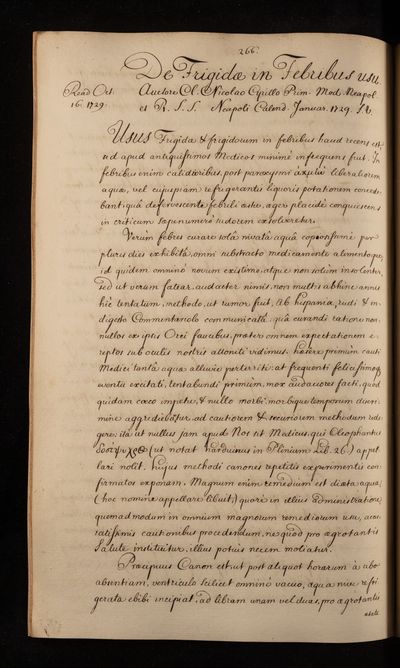 266.
De Frigidæ in Febribus usu.
Read Oct.
16. 1729.
Auctore Cl. Nicolao Cyrillo Prim. Med. Neapol.
et R. S. S. Neapoli Calend. Januar. 1729. S.V.
Usus Frigidæ & frigidorum in febribus haud recens est
sed apud antiquissimos Medicos minimè infrequens fuit. In
febribus enim calidioribus, post paroxysmi liberaliorem
aquæ, vel cujuspiam refrigerantis liquoris potationem concede-
bant: quâ defervescente febrili æstu, æger placidè conquiescens
in criticum sæpenumerò sudorem exsolveretur.
Verùm febres curare solâ nivatâ aquâ per
plures dies exhibitâ, omni substracto medicamento alimentoque,
id quidem omninò novum existimo, atque non solùm insolenter,
sed ut verum fatear, audacter nimis, non multis abhinc annis
hîc tentatum, methodo, ut rumor fuit, ab Hispania, rudi & in-
digesto Commentariolo communicatâ: quâ curandi ratione non-
nullos ex ipsis Orci faucibus, præter omnem expectationem e-
reptos sub oculis nostris attoniti vidimus. primùm cauti
Medici tantâ aquæ alluvie perterriti: at frequenti felicissimoq,
eventu excitati, tentabundi primùm, mox audaciores facti, quod
quidam cæco impetu, & nullo morbi, morbique temporum discri-
mine aggrediebatur, ad cautiorem & securiorem methodum rede-
gere: ità ut nullus jam apud Nos sit Medicus, qui Cleophantus
(ut notat Harduinus in Plinium Lib. 26.) appel-
lari nolit. hujus methodi canones repetitis experimentis con-
firmatos exponam. Magnum enim remedium est diæta aquea
(hoc nomine appellare libuit) quare in illius administratione,
quemadmodum in omnium magnorum remediorum usu, accu-
ratissimis cautionibus procedendum, ne quod pro ægrotantis
Salute instituitur, illius potius necem moliatur.
Præcipuus Canon est: ut post aliquot horarum à cibo
abstinentiam, ventriculo scilicet omninò vacuo, aqua nive refri-
gerata ebibi incipiat, ad libram unam vel duas, pro ægrotantis